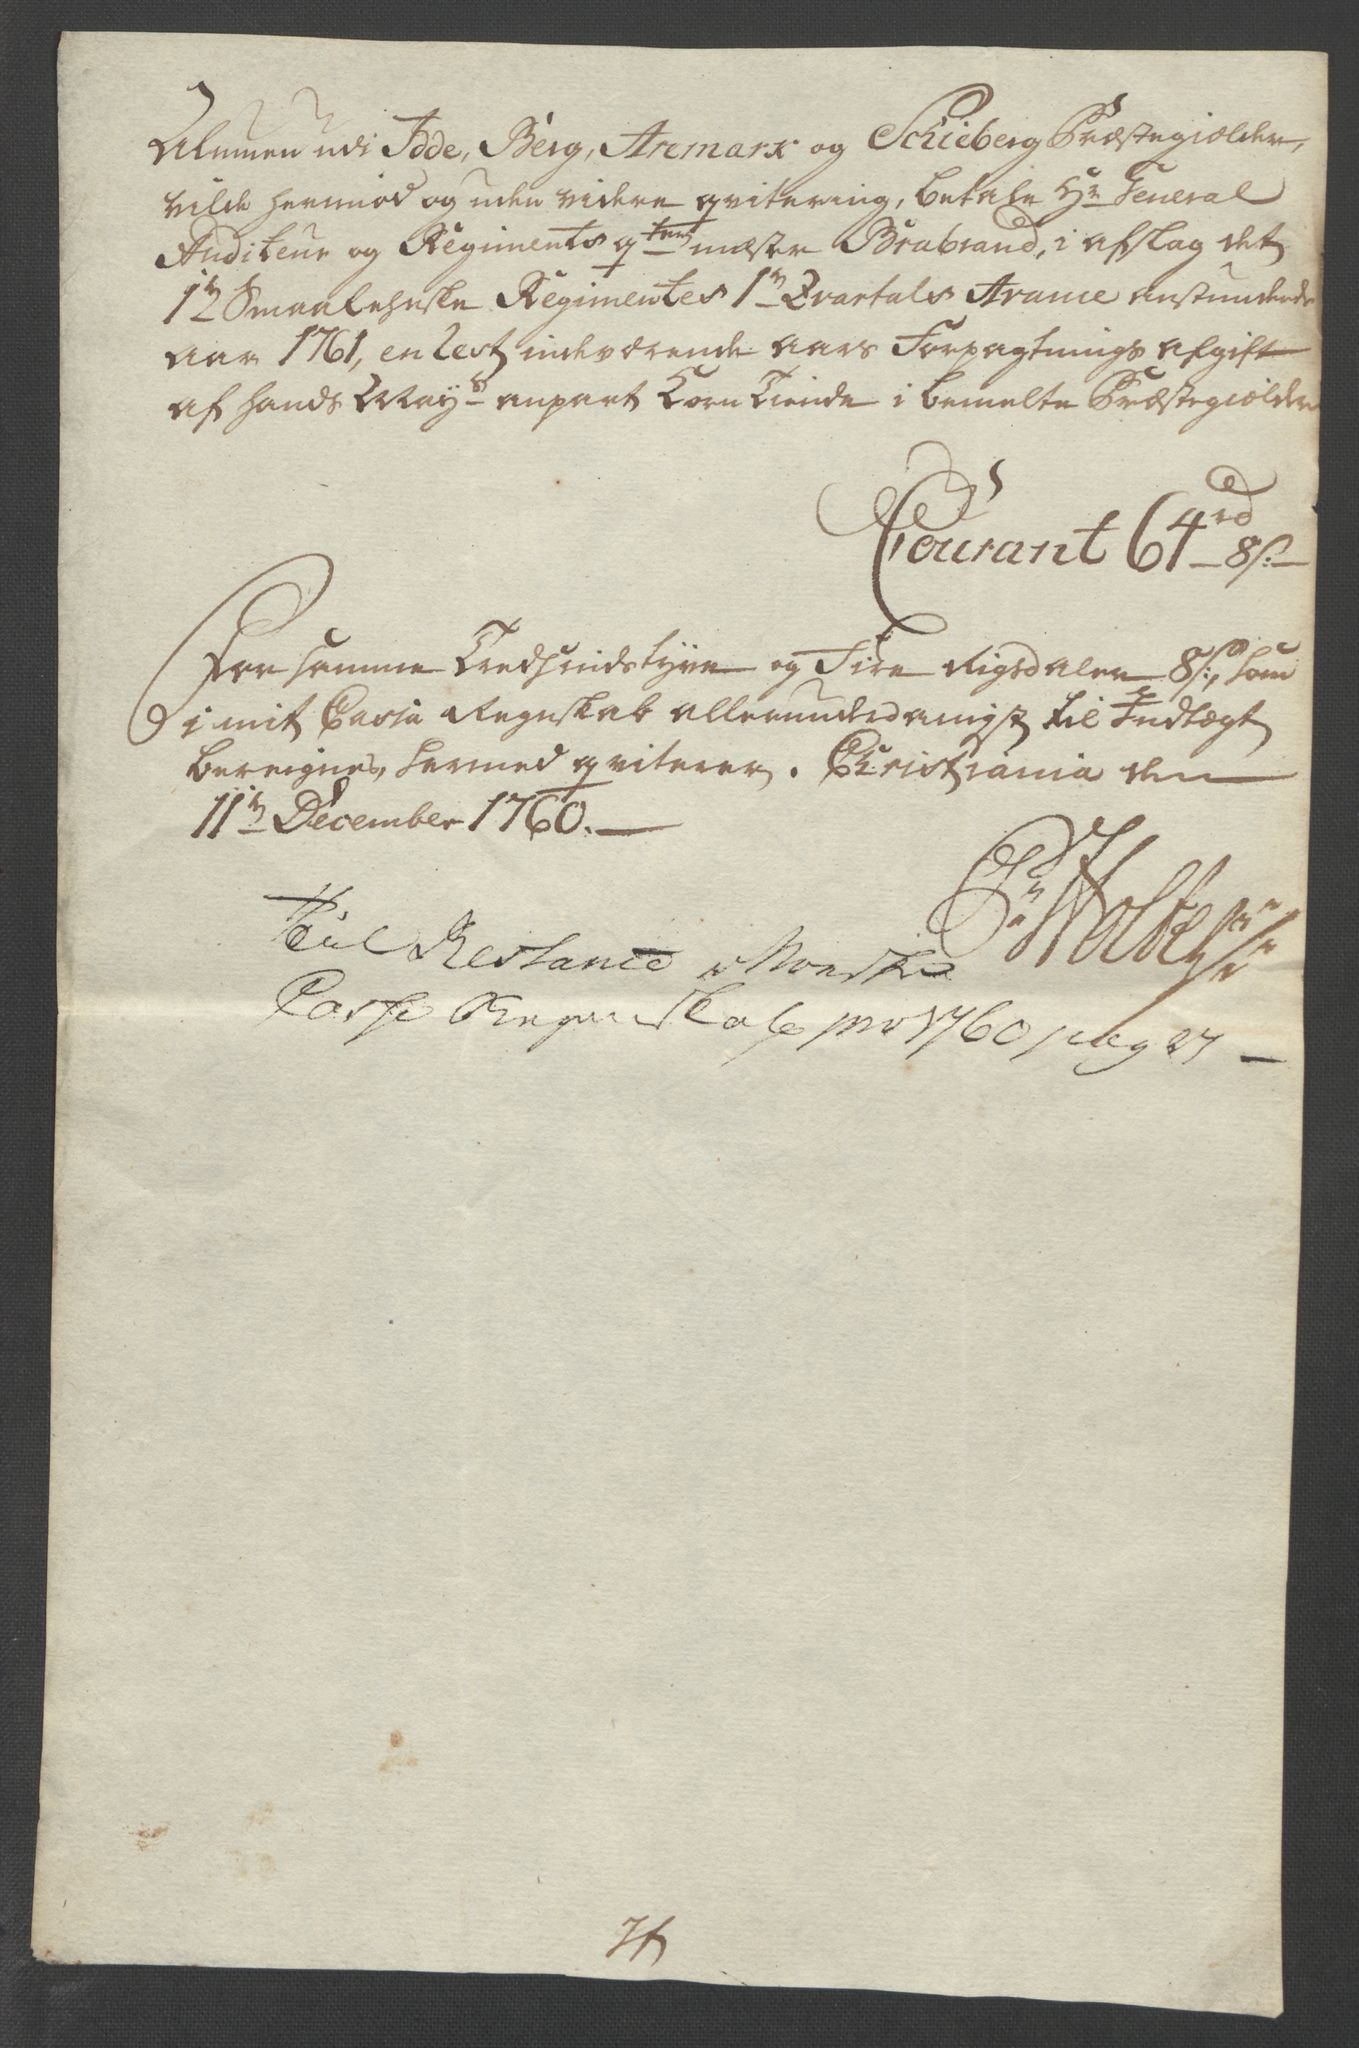 Almuen udi Idde, Berg, Aremark og Schieberg Præstegiælder,
vilde hermed og uden videre qvitering, betale Hr General
Auditeur og Regiments qteer mæster Brabrand, i afslag det
1te Smaalehnske Regimentes 1te Qvartals Avance anstundende
aar 1761, en lest indeværende aars Forpagtnings afgift
af hands Mayts anpart Korn Tiende i bemelte Præstegiælder
Courant 64 rd 8 s:
For samme Tredsindstyve og Fire Rigsdaler 8 s:, som
i mit Cassa Regnskab allerunderdanigst til Indtægt
bereignes, hermed qviterer. Christiania den
11te December 1760.
til Restance
Cassa Regenskab pro 1760 pag 27